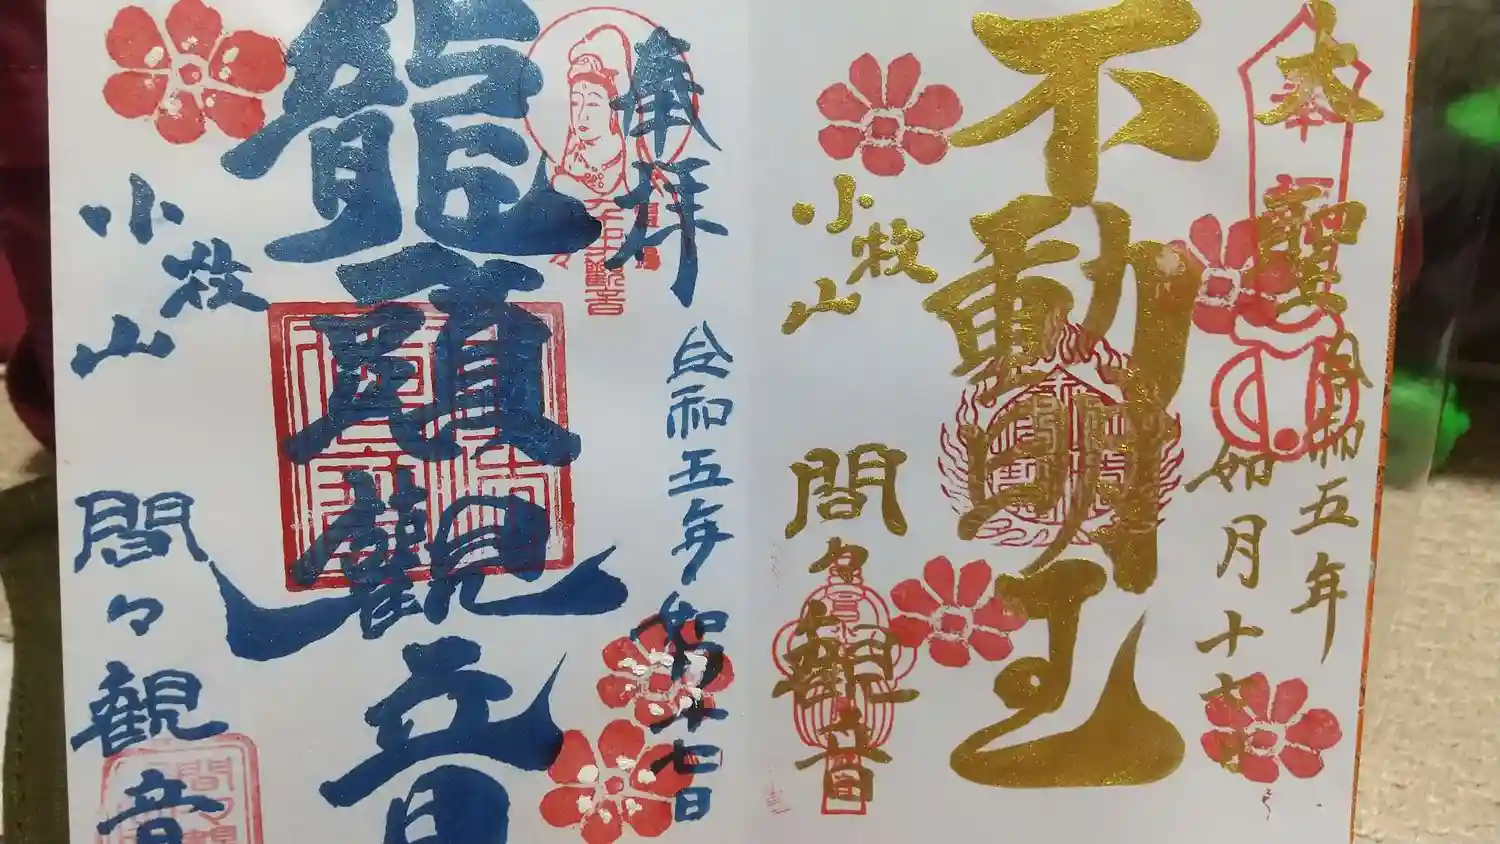 大聖
不動明王
令和五年
如月十七日
小牧山
間々観音
奉拝
龍頭観音
令和五年如月十七日
小牧山
間々観音